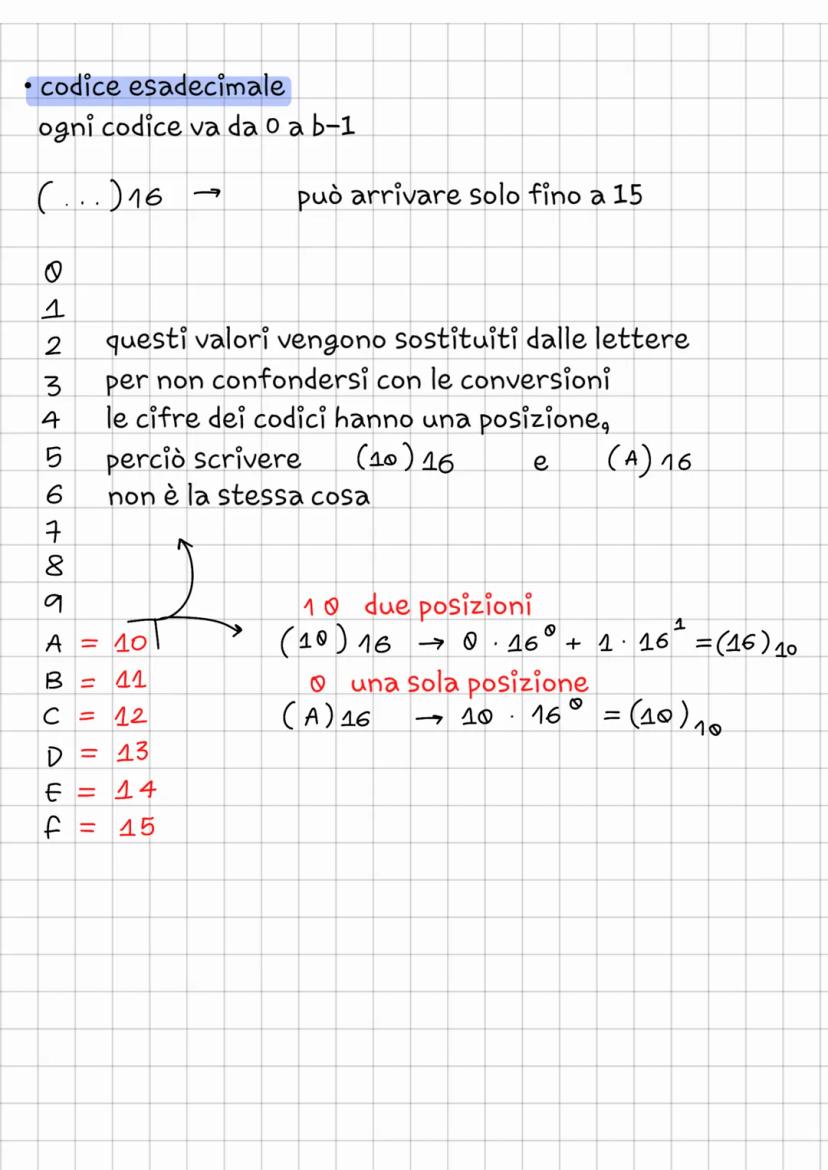 • codice esadecimale
ogni codice va da 0 a b-1
(...)16 → può arrivare solo fino a 15
0
1
2 questi valori vengono sostituiti dalle lettere
3 per non confondersi con le conversioni
4 le cifre dei codici hanno una posizione,
5 perciò scrivere (10)16 e (A)16
6 non è la stessa cosa
7
8
9
1 0 due posizioni
A = 10 (10)16 → 0 · 16⁰ + 1 · 16¹ = (16)10
B = 11
0 una sola posizione
C = 12 (A)16 → 10 · 16⁰ = (10)10
D = 13
E = 14
F = 15